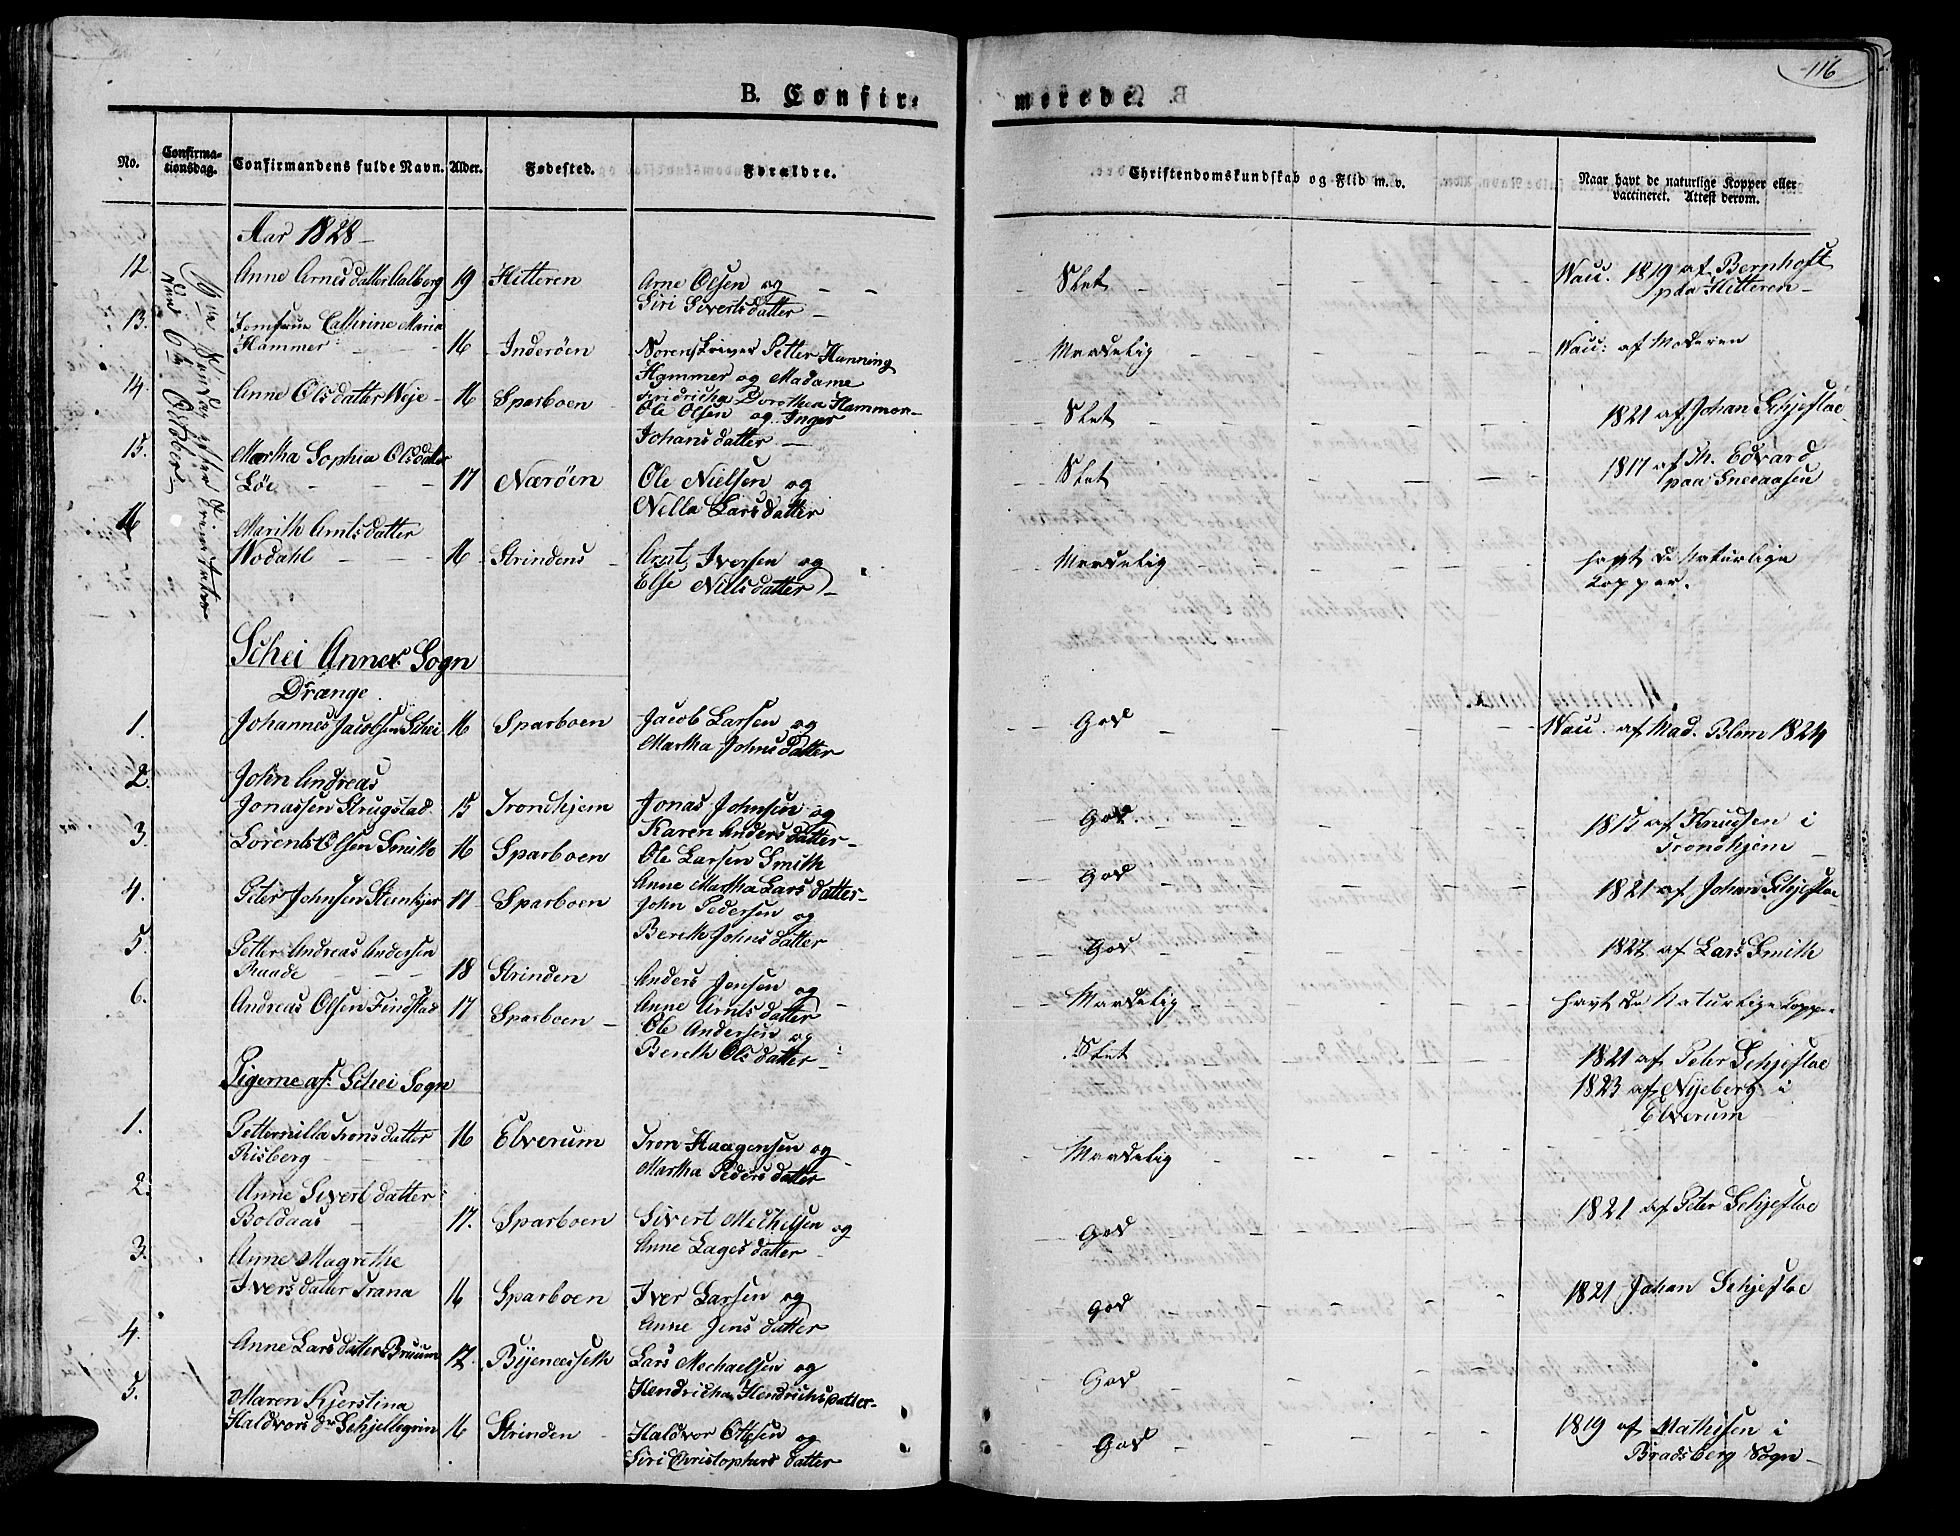 116
B. Confirmerede.
No. Confirmationsdag. Confirmandens fulde Navn. Alder. Fødested. Forældre. Christendomskundskab og Flid m. v. Naar havt de naturlige Kopper eller vaccineret. Attest derom.
Aar 1828
12. Anne Arnsdatter Aalberg 19 Hitteren Arne Olsen og Siri Sivertsdatter Slet Vacc. 1819 af Bernhoft paa Hitteren
13. Jomfrue Cathrine Maria Hammer 16 Inderöen Sorenskriver Petter Hanning Hammer og Madame Fridricha Dorothea Hammer Maadelig Vacc: af Moderen
14. Anne Olsdatter Weje 16 Sparboen Ole Olsen og Inger Johansdatter Slet 1821 af Johan Schjefloe
15. Martha Sophia Olsdatter Löe 17 Næröen Ole Nielsen og Nella Larsdatter Slet 1817 af Th. Edvard paa Sneaasen
16 Marith Arntsdatter Wodahl 16 Strinden Arnt Iversen og Else Nielsdatter Maadelig havt de Naturlige Kopper.
Schei Annex Sogn
Drænge
1. Johannes Jacobsen Schei 16 Sparboen Jacob Larsen og Martha Johnsdatter God Vacc. af Mad. Blom 1824
2. John Andreas Jonassen Strugstad 15 Trondhjem Jonas Johnsen og Karen Andersdatter God 1815 af Knudsen i Trondhjem
3. Lorents Olsen Smith 16 Sparboen Ole Larsen Smith Anne Martha Larsdatter God 1821 af Johan Schjefloe
4. Peter Johnsen Stemkjer 17 Sparboen John Pedersen og Bereth Johnsdatter God 1822 af Lars Smith
5. Petter Andreas Andersen Raade 18 Strinden Anders Jensen og Anne Arntsdatter Maadelig havt de Naturlige Kopper
6. Andreas Olsen Findstad 17 Sparboen Ole Andersen og Bereth Olsdatter Slet 1821 af Peter Schjefloe
Pigerne af Schei Sogn
1. Petternilla Tronsdatter Risberg 16 Elverum Tron Haagensen og Martha Pedersdatter Maadelig 1823 af Nyeberg i Elverum
2. Anne Sivertdatter Boldaas 17. Sparboen Sivert Mechelsen og Anne Lagesdatter God 1821 af Peter Schjefloe
3. Anne Magrethe Iversdatter Trana 16 Sparboen Iver Larsen og Anne Jensdatter God 1821 Johan Schjefloe
4. Anne Larsdatter Bruum 17. Byenæsseth Lars Mechaelsen og Hendricha Hendrichsdatter God
5. Maren Kjerstina Haldvors Dr Schjellegrin 16 Strinden Haldvor Ottesen og Siri Christophersdatter God 1819 af Mathisen i Bradsberg Sogn